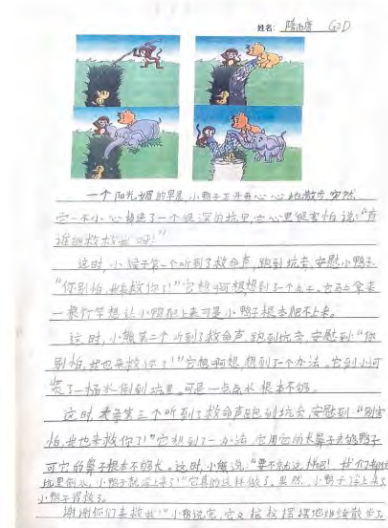 姓名: G2D
一个阳光明媚的早晨,小鸭子正开开心心地散步,突然,
它一不小心掉进了一个很深的坑里,它心里很害怕,说:“有
谁能救救我呀!”
这时,小猴子第一个听到了救命声,跑到坑旁,安慰小鸭子:
“你别怕,我来救你了!”它想啊想想到了一个主意。它马上拿来
一根竹竿想让小鸭爬上来可是小鸭子根本爬不上来。
这时,小熊第二个听到了救命声跑到坑旁,安慰到:“你
别怕,我也来救你了!”它想啊想,想到了一个办法。它到小河
装了一桶水倒到坑里,可是一点点水根本不够。
这时,大象第三个听到了救命声跑到坑旁,安慰到:“别害
怕,我也来救你了!”它想到了一办法,它用它的长鼻子去够鸭子
可它的鼻子根本不够长。这时,小熊说:“要不
里倒水,小鸭子就浮上来了!”它真的这样做了。果然,小鸭子浮上来了
小鸭子得救了。
“谢谢你们来救我!”小鸭说完,它又摇摇摆摆地继续散步了。